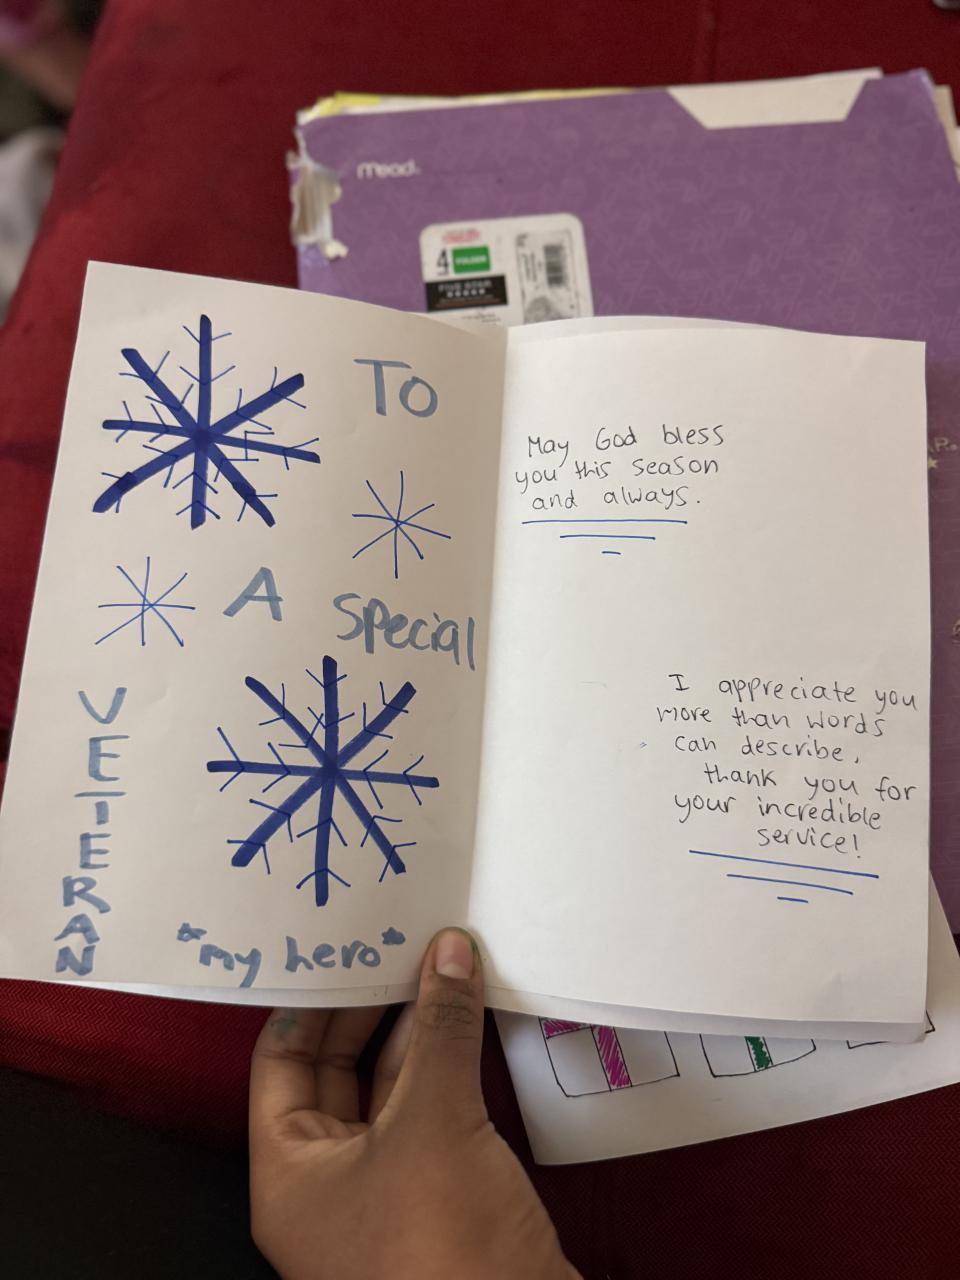 Mead
4
FOLDER
FIVE STAR
TO
A
Special
VETERAN
*my hero*
May God bless
you this season
and always.
I appreciate you
more than words
can describe,
thank you for
your incredible
service!